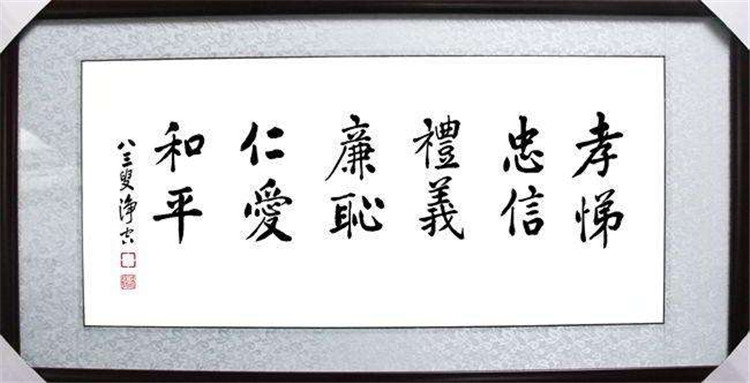 孝悌
忠信
禮義
廉恥
仁愛
和平
八三叟淨空